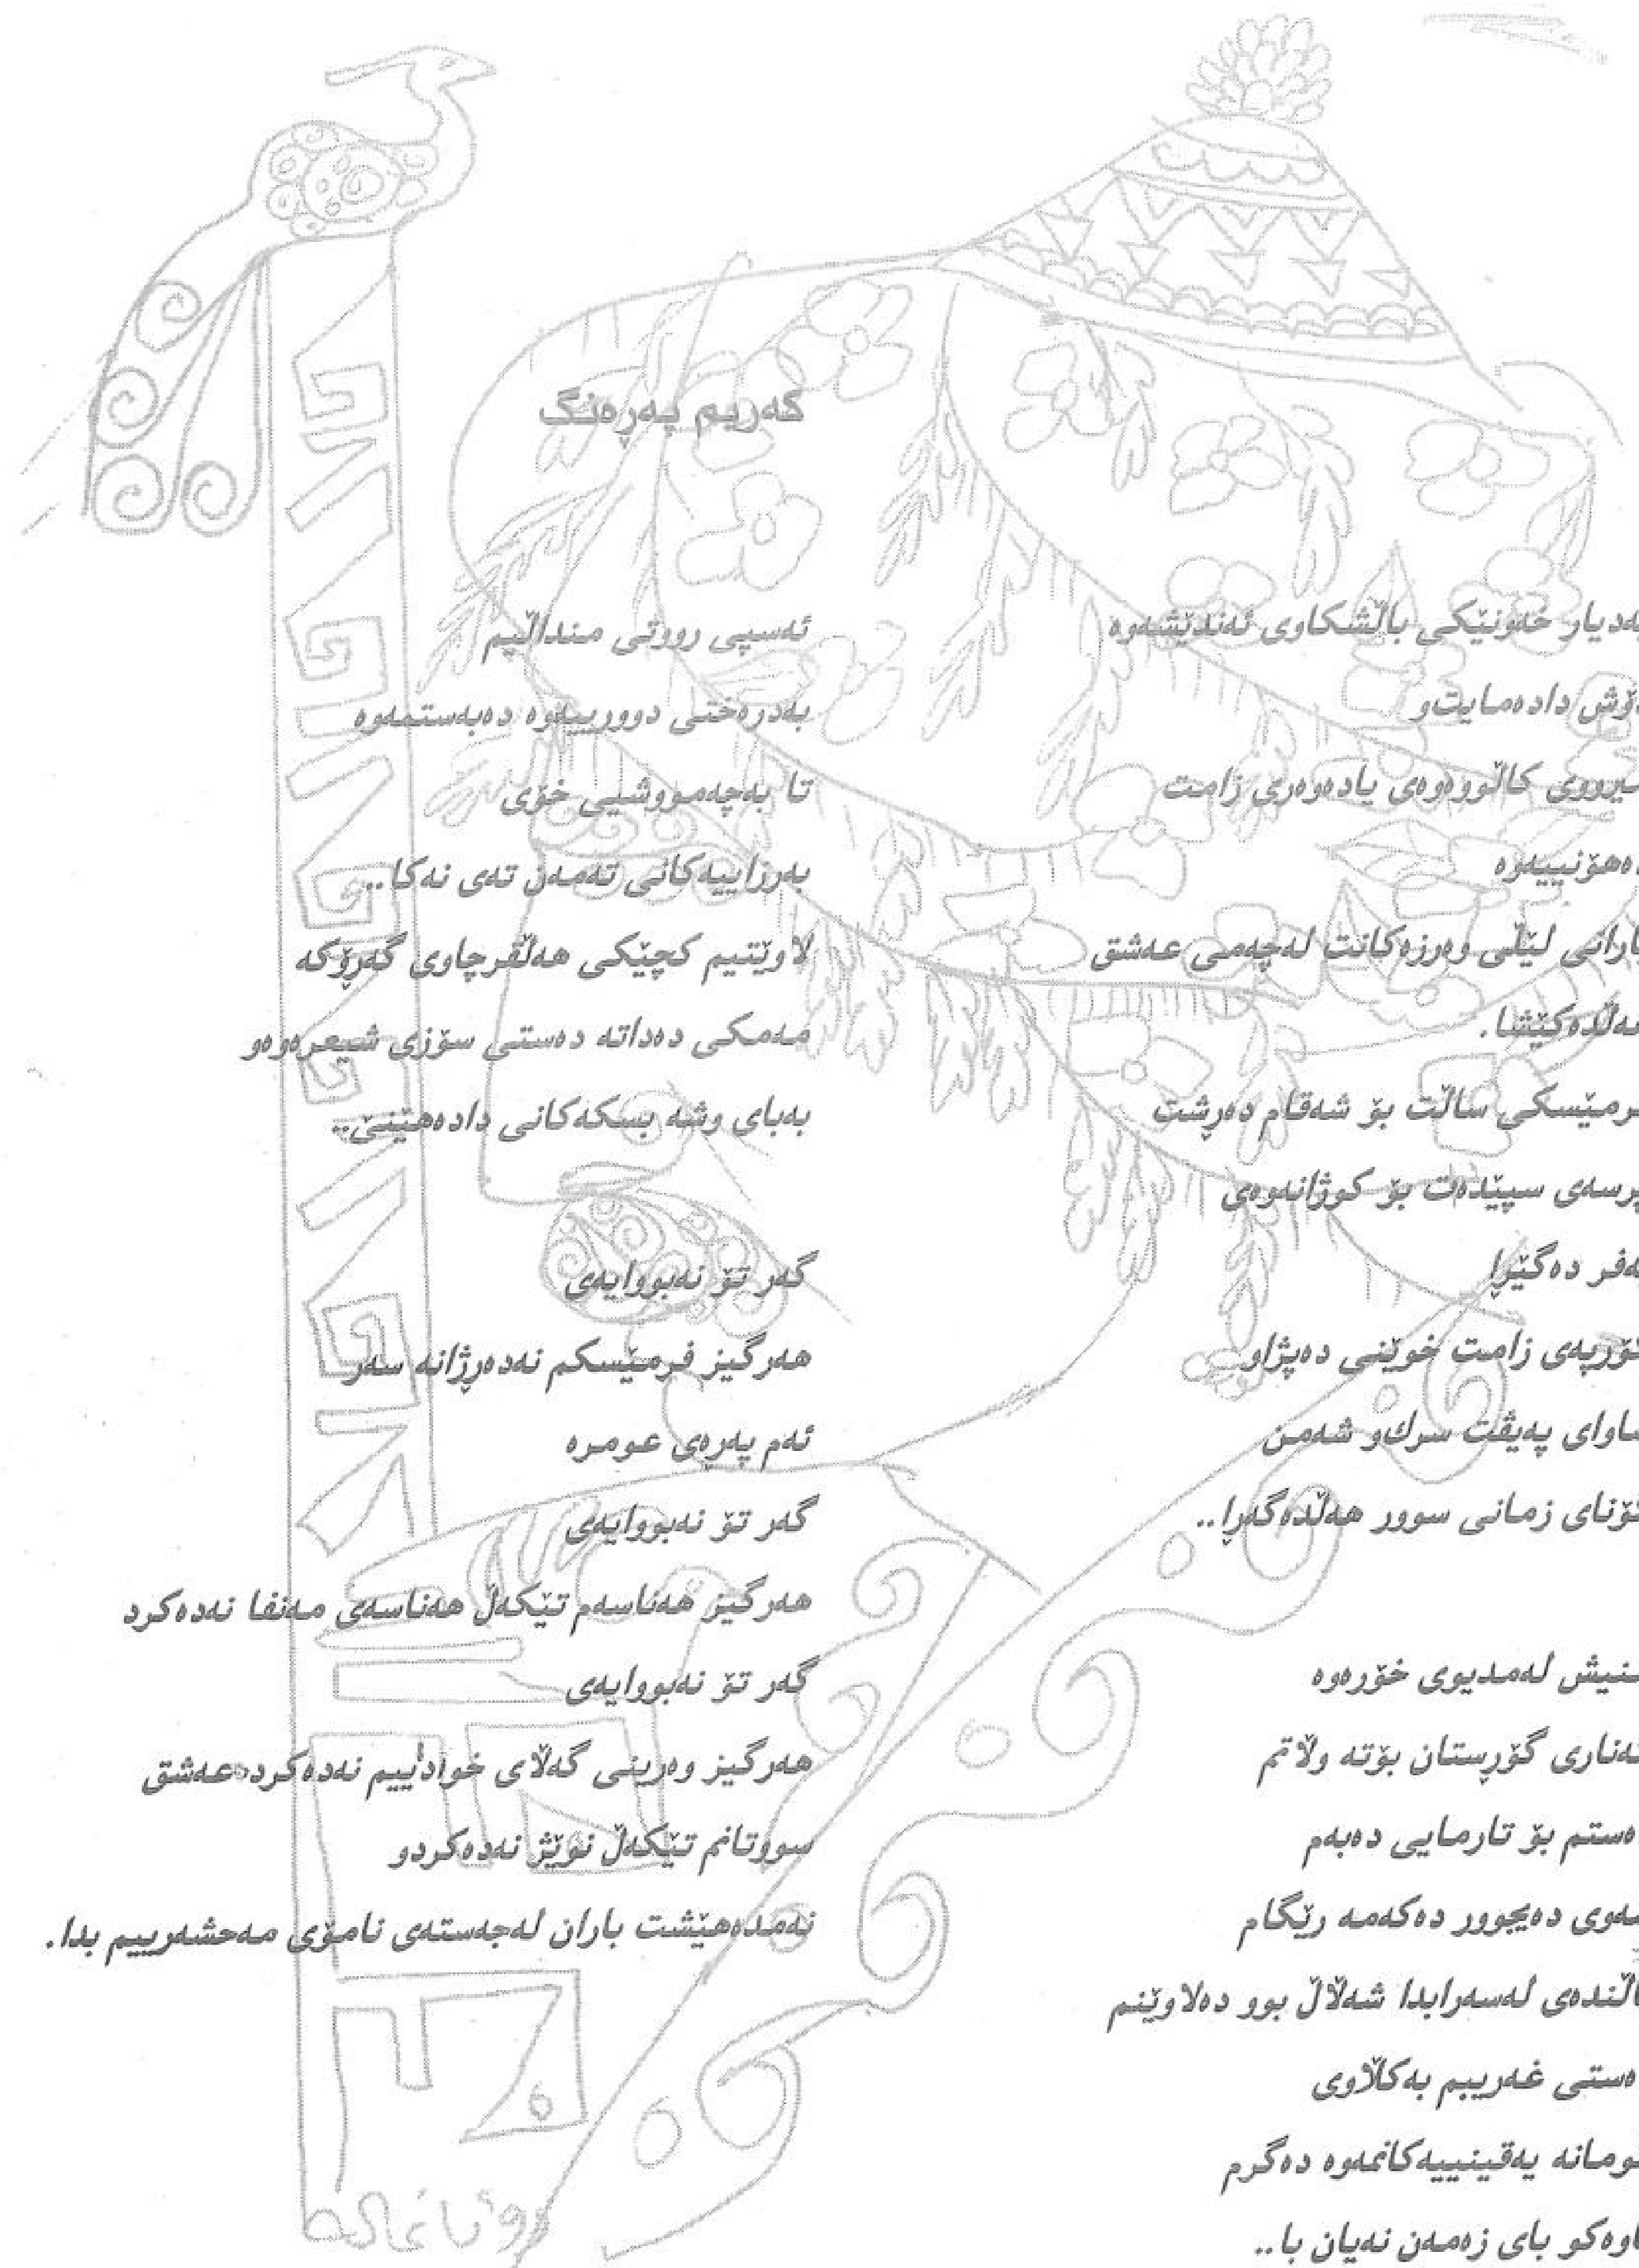 کەریم پەڕەنگ
خەونێکی باڵشکاوی ئەندێشەوە
دادەمایت‌و
کاڵووەوەی یادەوەری زامت
لێڵی وەرزەکانت لەچەمی عەشق
ساڵت بۆ شەقام دەڕشت
سپێدەت بۆ کوژانەوەی
دەگێڕا
زامت خوێنی دەپژاو
پەیڤت سرك‌و شەمن
زمانی سوور هەڵدەگەڕا..
لەمدیوی خۆرەوە
گۆڕستان بۆتە وڵاتم
بۆ تارمایی دەبەم
دەیجوور دەکەمە رێگام
لەسەرابدا شەڵاڵ بوو دەلاوێنم
غەریبم بەکڵاوی
یەقینییەکانمەوە دەگرم
بای زەمەن نەیان با..
ئەسپی رووتی منداڵیم
بەدرەختی دوورییەوە دەبەستمەوە
تا بەچەمووشیی خۆی
بەرزاییەکانی تەمەن تەی نەکا..
لاوێتیم کچێکی هەڵقرچاوی گەڕۆکە
مەمکی دەداتە دەستی سۆزی شیعرەوەو
بەبای وشە بسکەکانی دادەهێنێ..
گەر تۆ نەبووایەی
هەرگیز فرمێسکم نەدەڕژانە سەر
ئەم پەڕەی عومرە
گەر تۆ نەبووایەی
هەرگیز هەناسەم تێکەڵ هەناسەی مەنفا نەدەکرد
گەر تۆ نەبووایەی
هەرگیز وەرینی گەڵای خوداییم نەدەکردە عەشق
سووتانم تێکەڵ نوێژ نەدەکردو
نەمدەهێشت باران لەجەستەی نامۆی مەحشەرییم بدا.